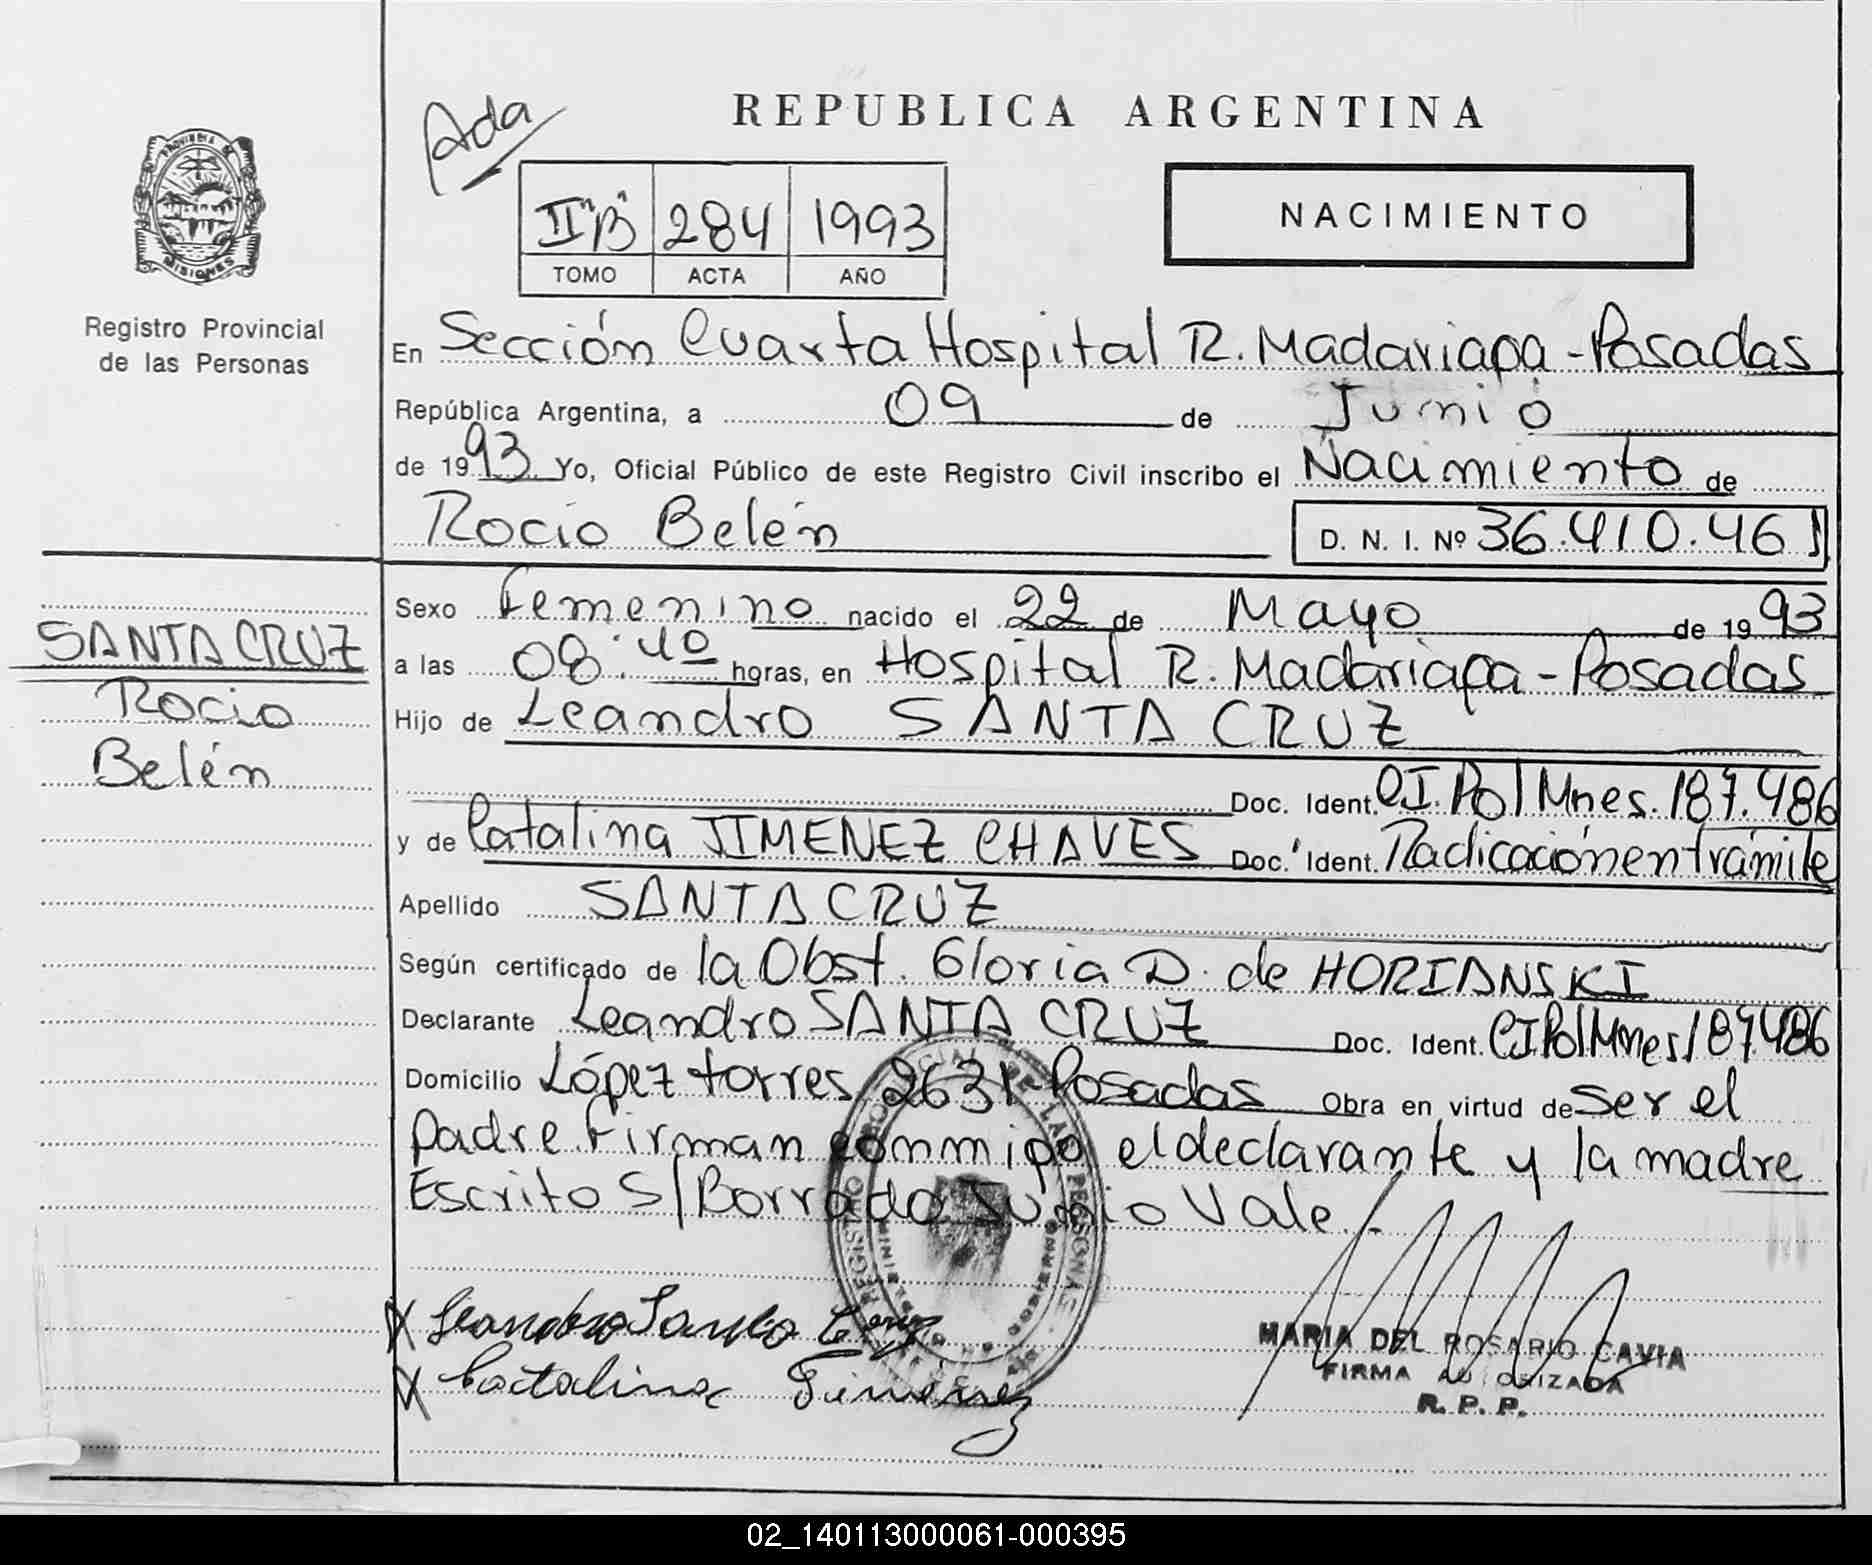 REPUBLICA ARGENTINA
Ada
PROVINCIA DE
MISIONES
II "B" 284 1993
TOMO ACTA AÑO
NACIMIENTO
Registro Provincial
de las Personas
En Sección Cuarta Hospital R. Madariaga - Posadas
República Argentina, a 09 de Junio
de 1993 Yo, Oficial Público de este Registro Civil inscribo el Nacimiento de
Rocio Belén D. N. I. Nº 36.410.461
SANTA CRUZ
Rocio
Belén
Sexo Femenino nacido el 22 de Mayo de 1993
a las 08:40 horas, en Hospital R. Madariaga - Posadas
Hijo de Leandro SANTA CRUZ
Doc. Ident. CI. Pol Mnes. 187.486
y de Catalina JIMENEZ CHAVES Doc. Ident. Radicación en trámite
Apellido SANTA CRUZ
Según certificado de la Obst. Gloria D. de HORIANSKI
Declarante Leandro SANTA CRUZ Doc. Ident. CI Pol Mnes 187.486
Domicilio López torres 2631 - Posadas Obra en virtud de Ser el
padre. Firman conmigo el declarante y la madre
Escrito S/Borrado Junio Vale.-
X Leandro Santa Cruz
X Catalina Gimenez
MARIA DEL ROSARIO CAVIA
FIRMA AUTORIZADA
R. P. P.
REGISTRO PROVINCIAL DE LAS PERSONAS
02_140113000061-000395